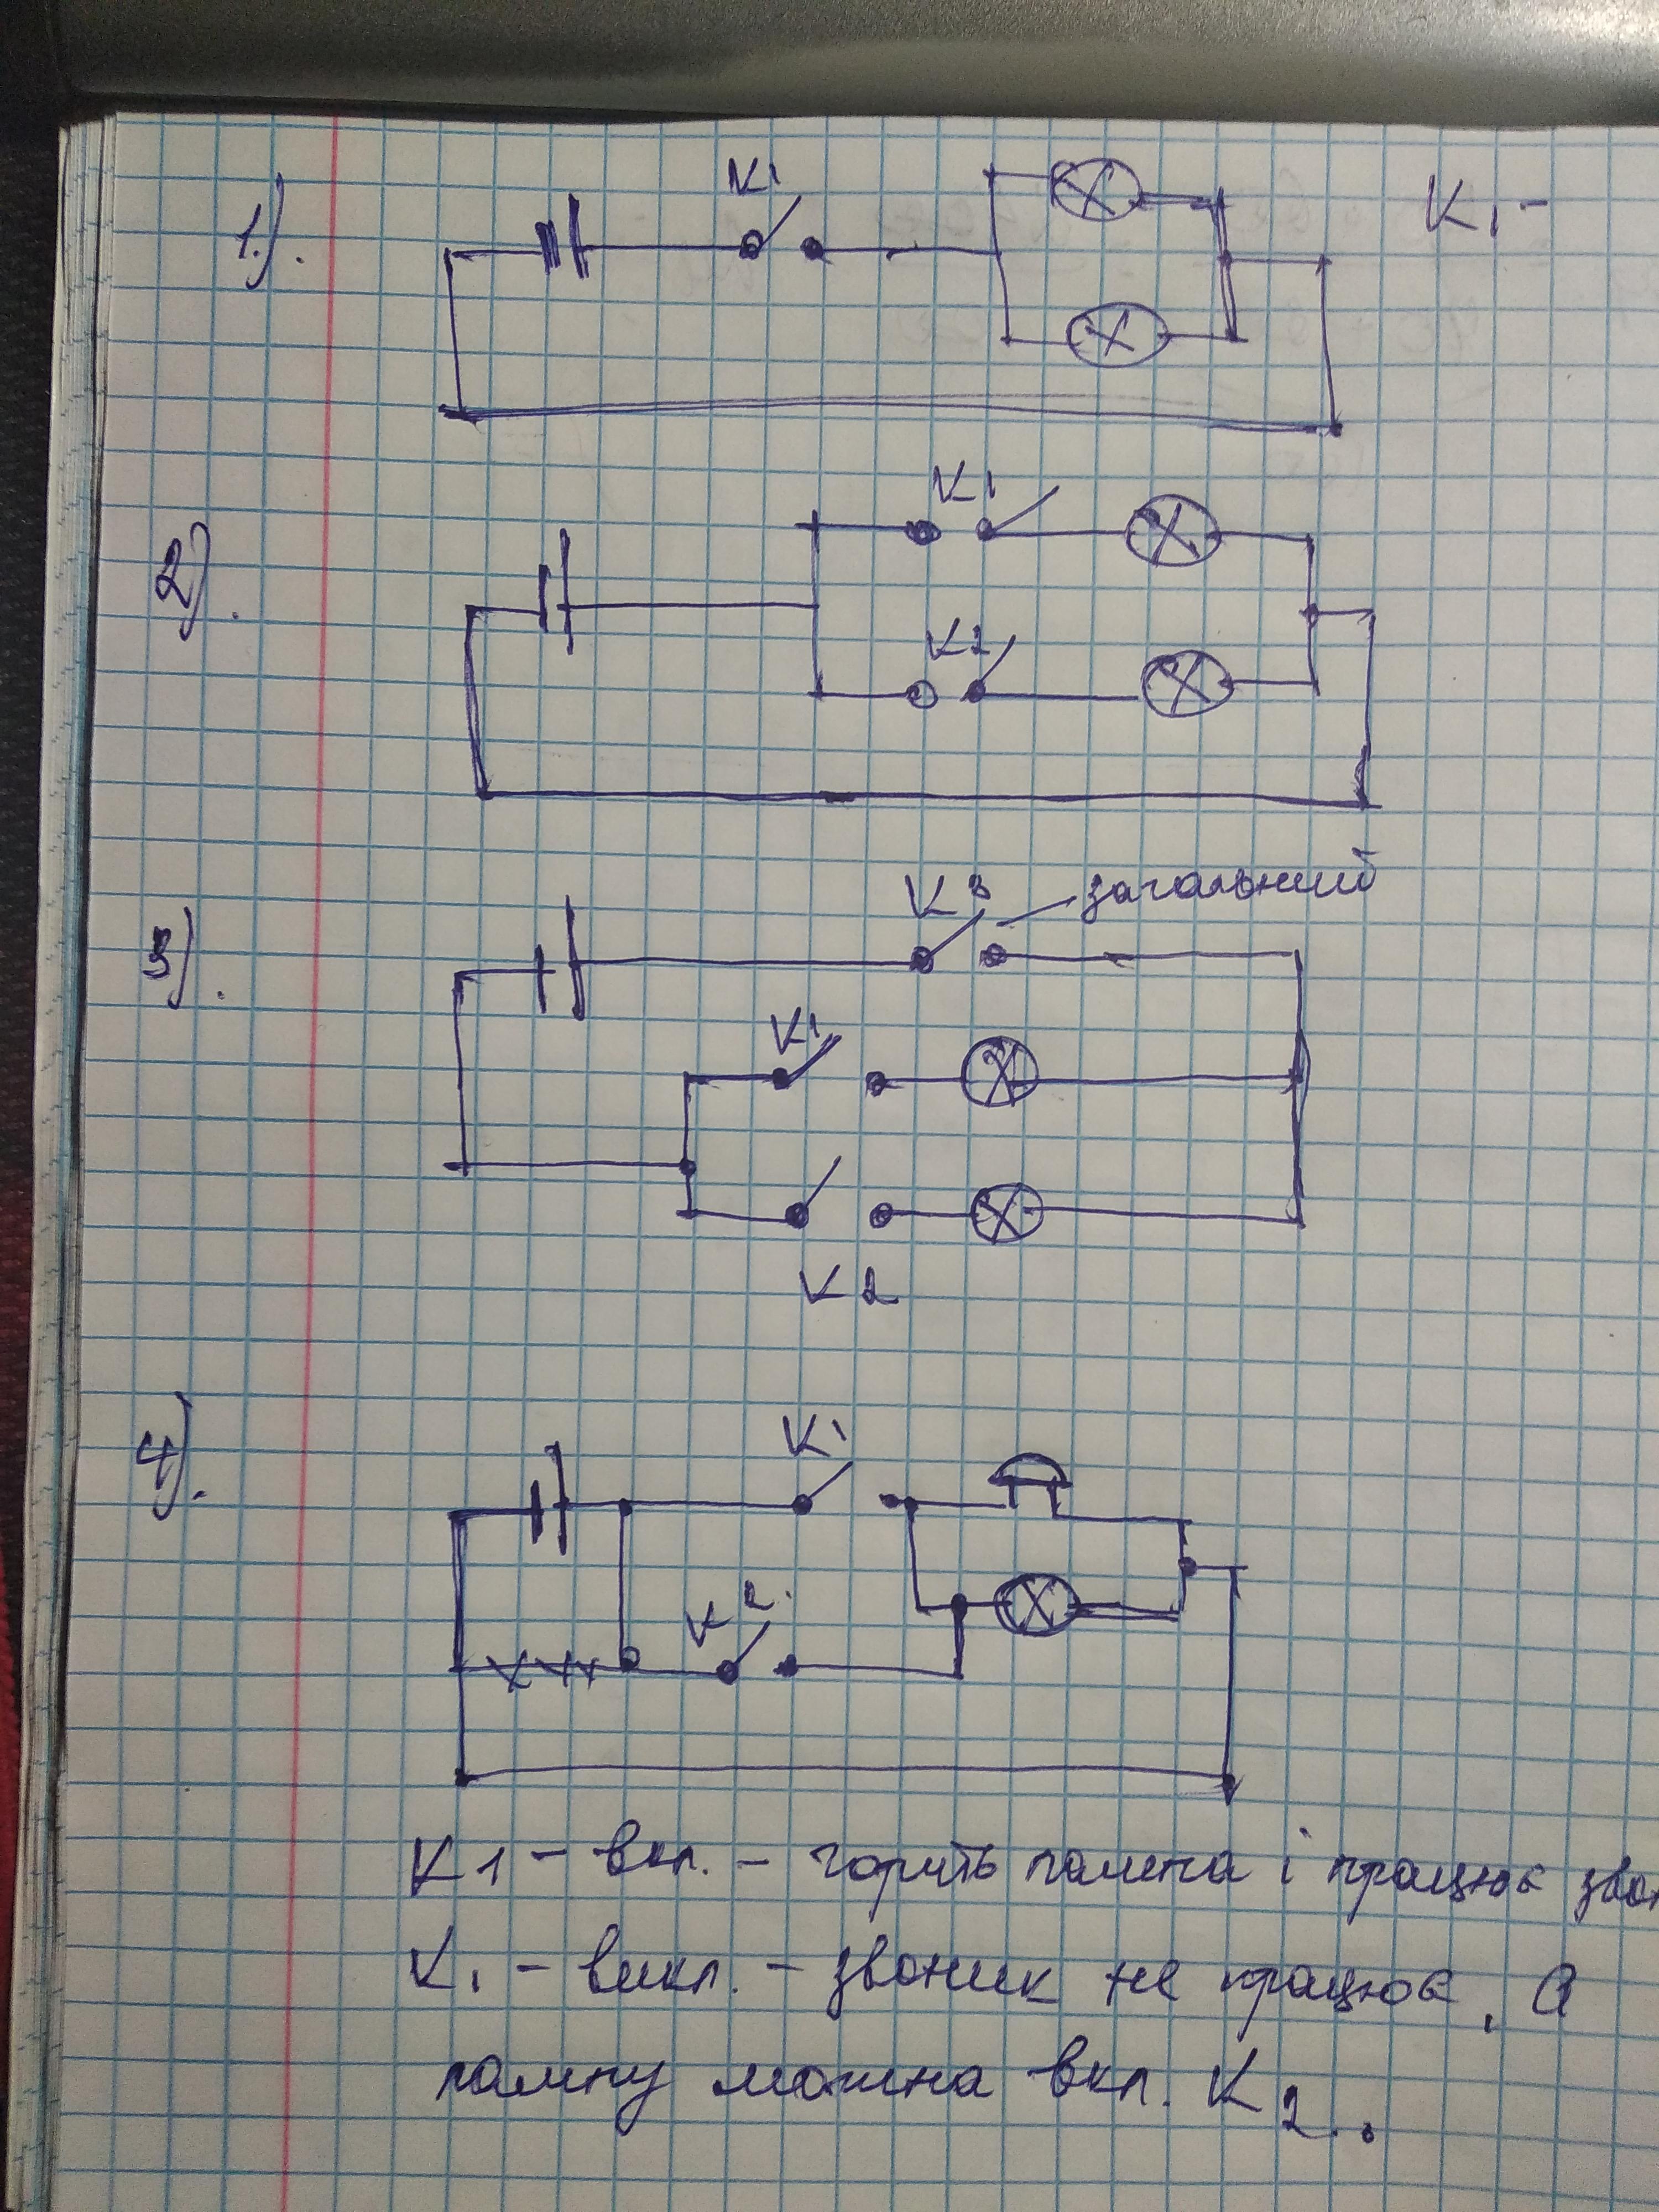 1). К1 К1 -
2). К1
К2
3). К3 загальний
К1
К2
4). К1
К2.
К1 - вкл. - горить лампа і працює
К1 - викл. - звоник не працює, а
лампу можна вкл. К2.